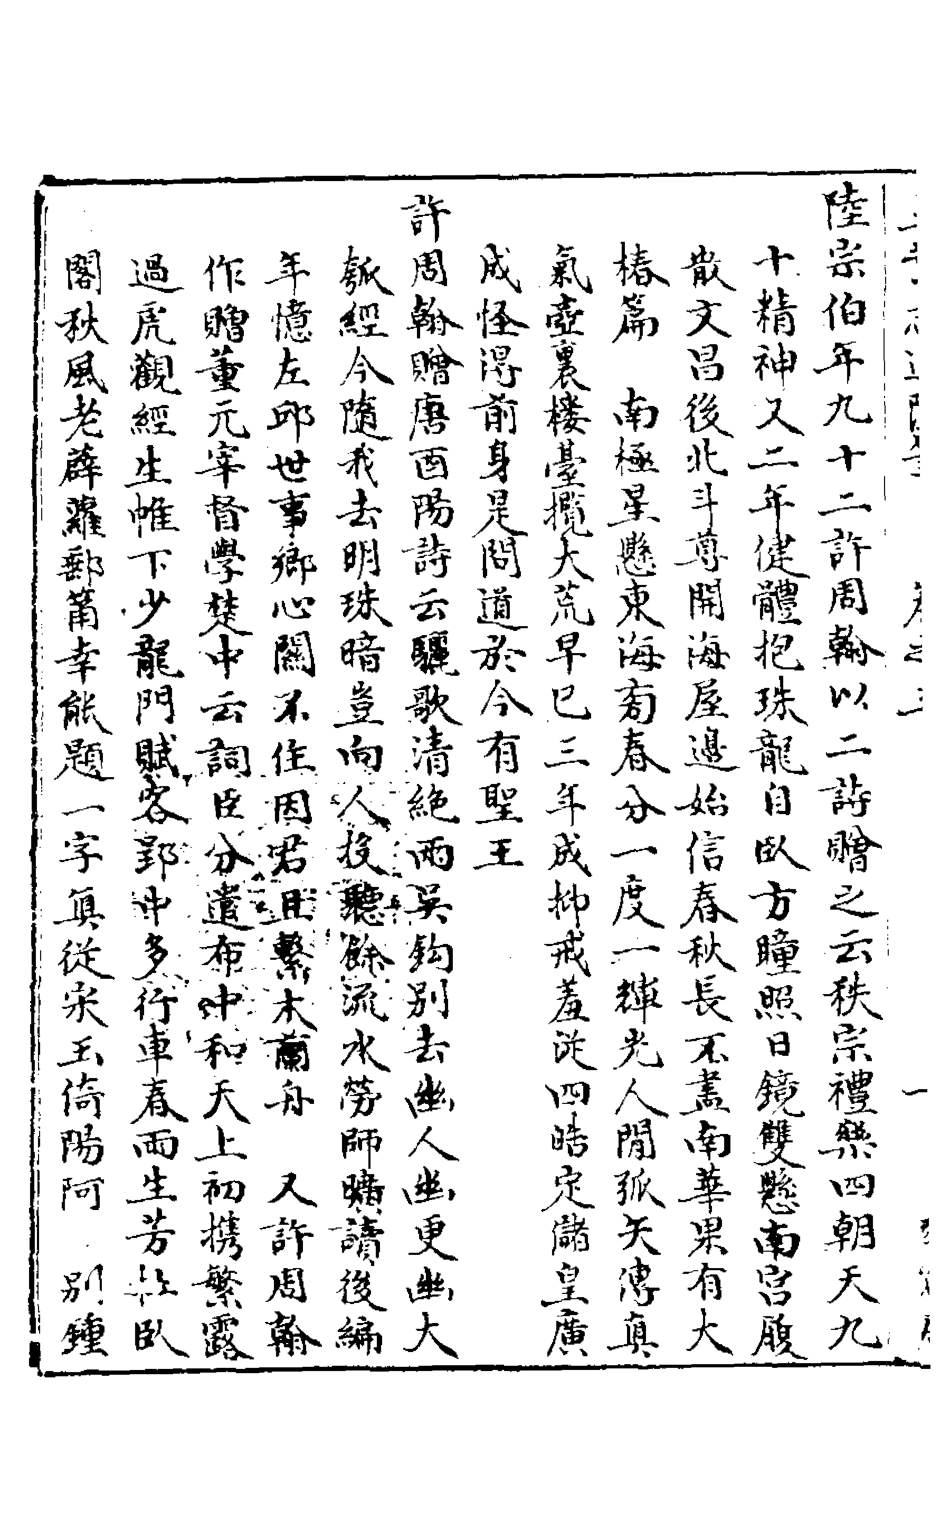 陸宗伯年九十二許周翰以二詩贈之云秩宗禮樂四朝天九
十精神又二年健體抱珠龍自臥方瞳照日鏡雙懸南宮腹
散文昌後北斗尊開海屋邊始信春秋長不盡南華果有大
椿篇　南極星懸東海旁春分一度一輝光人間弧矢傳真
氣壺裏樓臺攬大荒早已三年成抑戒羞從四皓定儲皇廣
成怪得前身是問道於今有聖王
許周翰贈唐酉陽詩云驪歌清絶雨吳鈎别去幽人幽更幽大
瓠經今隨我去明珠暗豈向人投聽餘流水勞師曠讀後編
年憶左邱世事鄉心關不住因君且繫木蘭舟　又許周翰
作贈董元宰督學楚中云詞臣分遣布中和天上初携繁露
過虎觀經生帷下少龍門賦客郢中多行車春雨生芳臥
閣秋風老薜蘿鄴莆幸能題一字真從宋玉倚陽阿　别鍾
卷之三
一